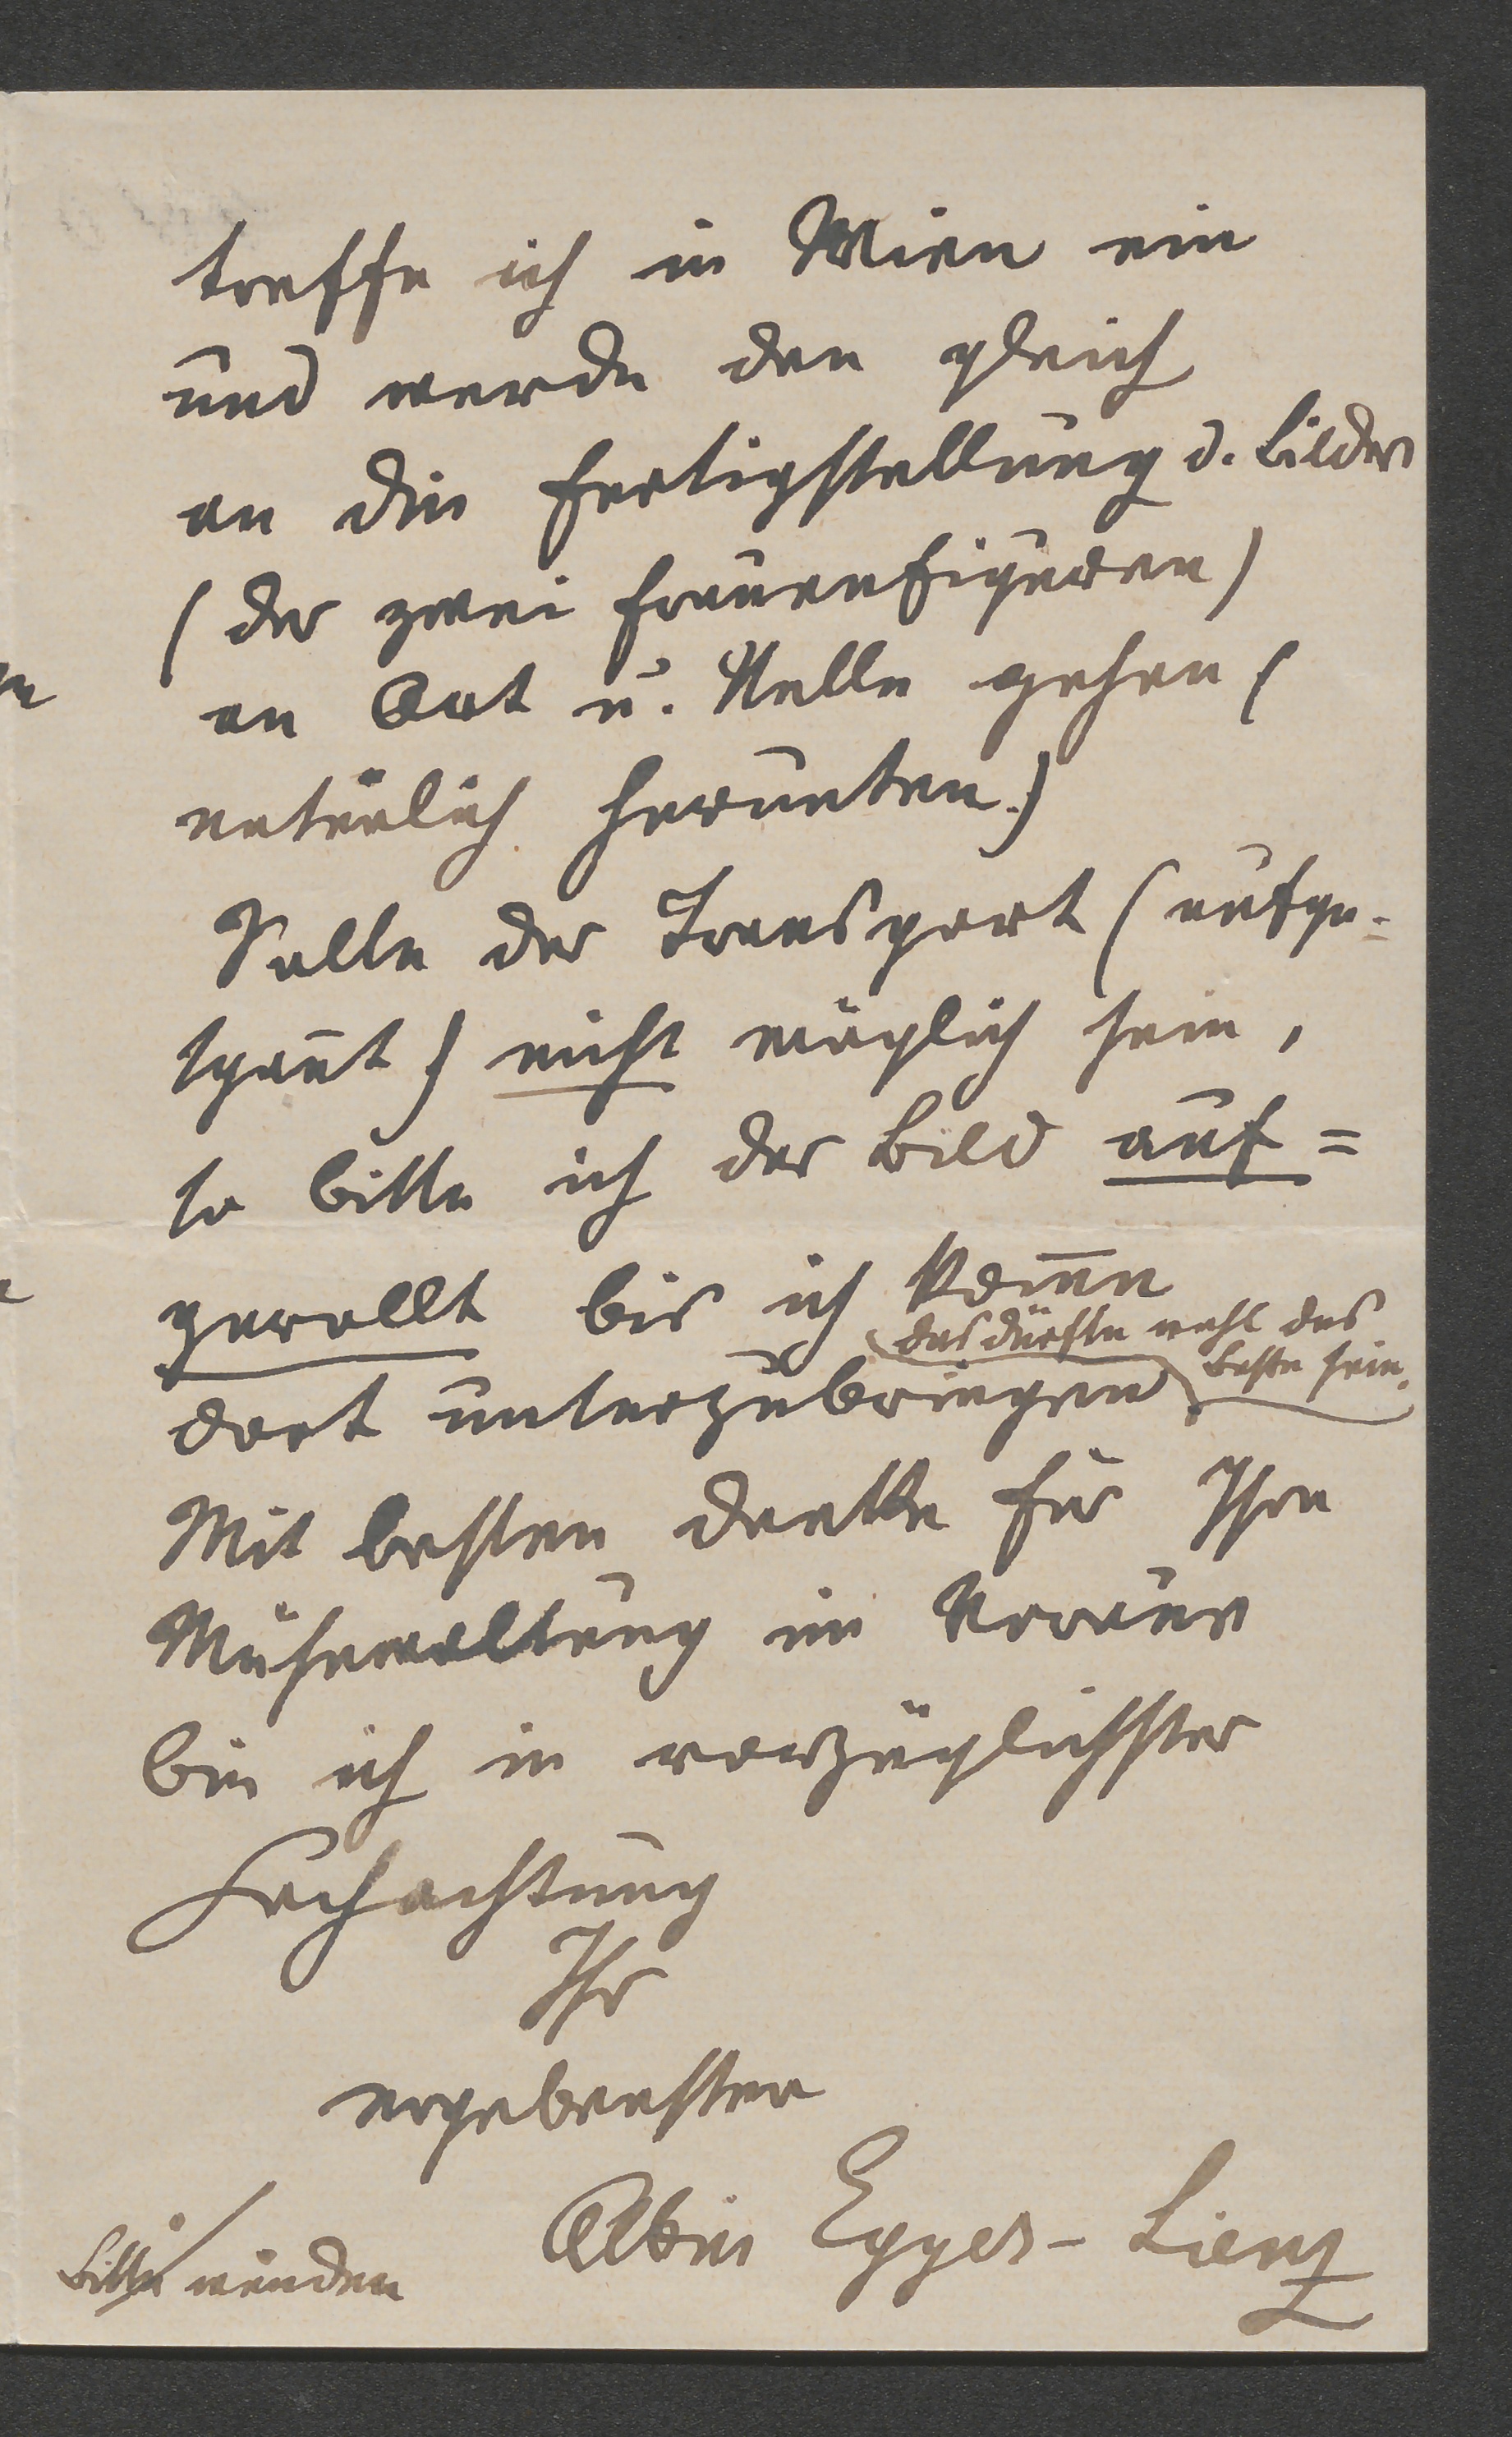 treffe ich in Wien ein
und werde dan gleich
an die Fertigstellung d. Bildes
(der zwei Frauenfiguren)
an Ort u. Stelle gehen (
natürlich herunten.)
Solle der Transport (aufge-
spant) nicht möglich sein,
so bitte ich das Bild auf=
gerollt bis ich kom̅e
das dürfte wohl das
beste sein.
dort unterzubringen
Mit besten Danke für Ihre
Mühewaltung im Voraus
bin ich in vorzüglichster
Hochachtung
Ihr
ergebenster
Albin Egger-Lienz
Bitte wenden